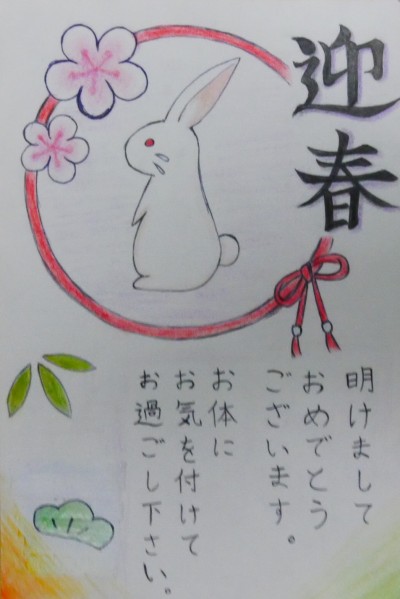 迎春
明けまして
おめでとう
ございます。
お体に
お気を付けて
お過ごし下さい。